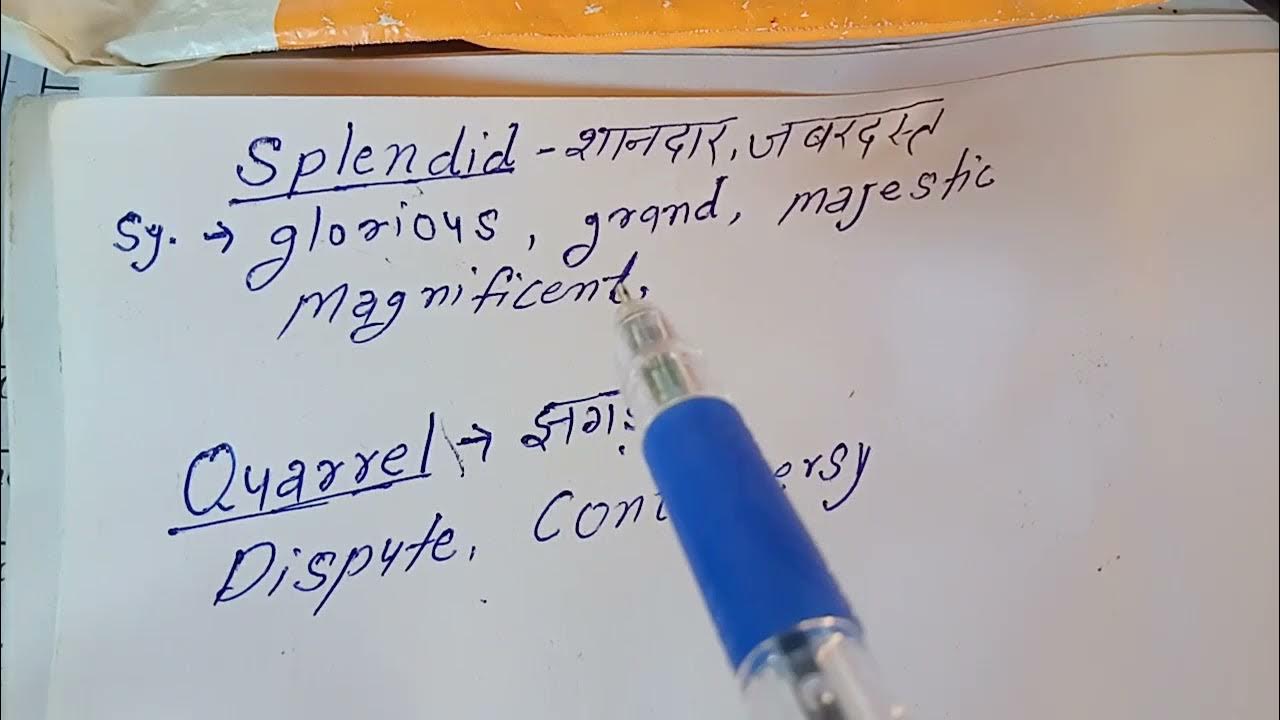 Splendid - शानदार, जबरदस्त
Sy. → glorious, grand, majestic
Magnificent.
Quarrel →
Dispute,